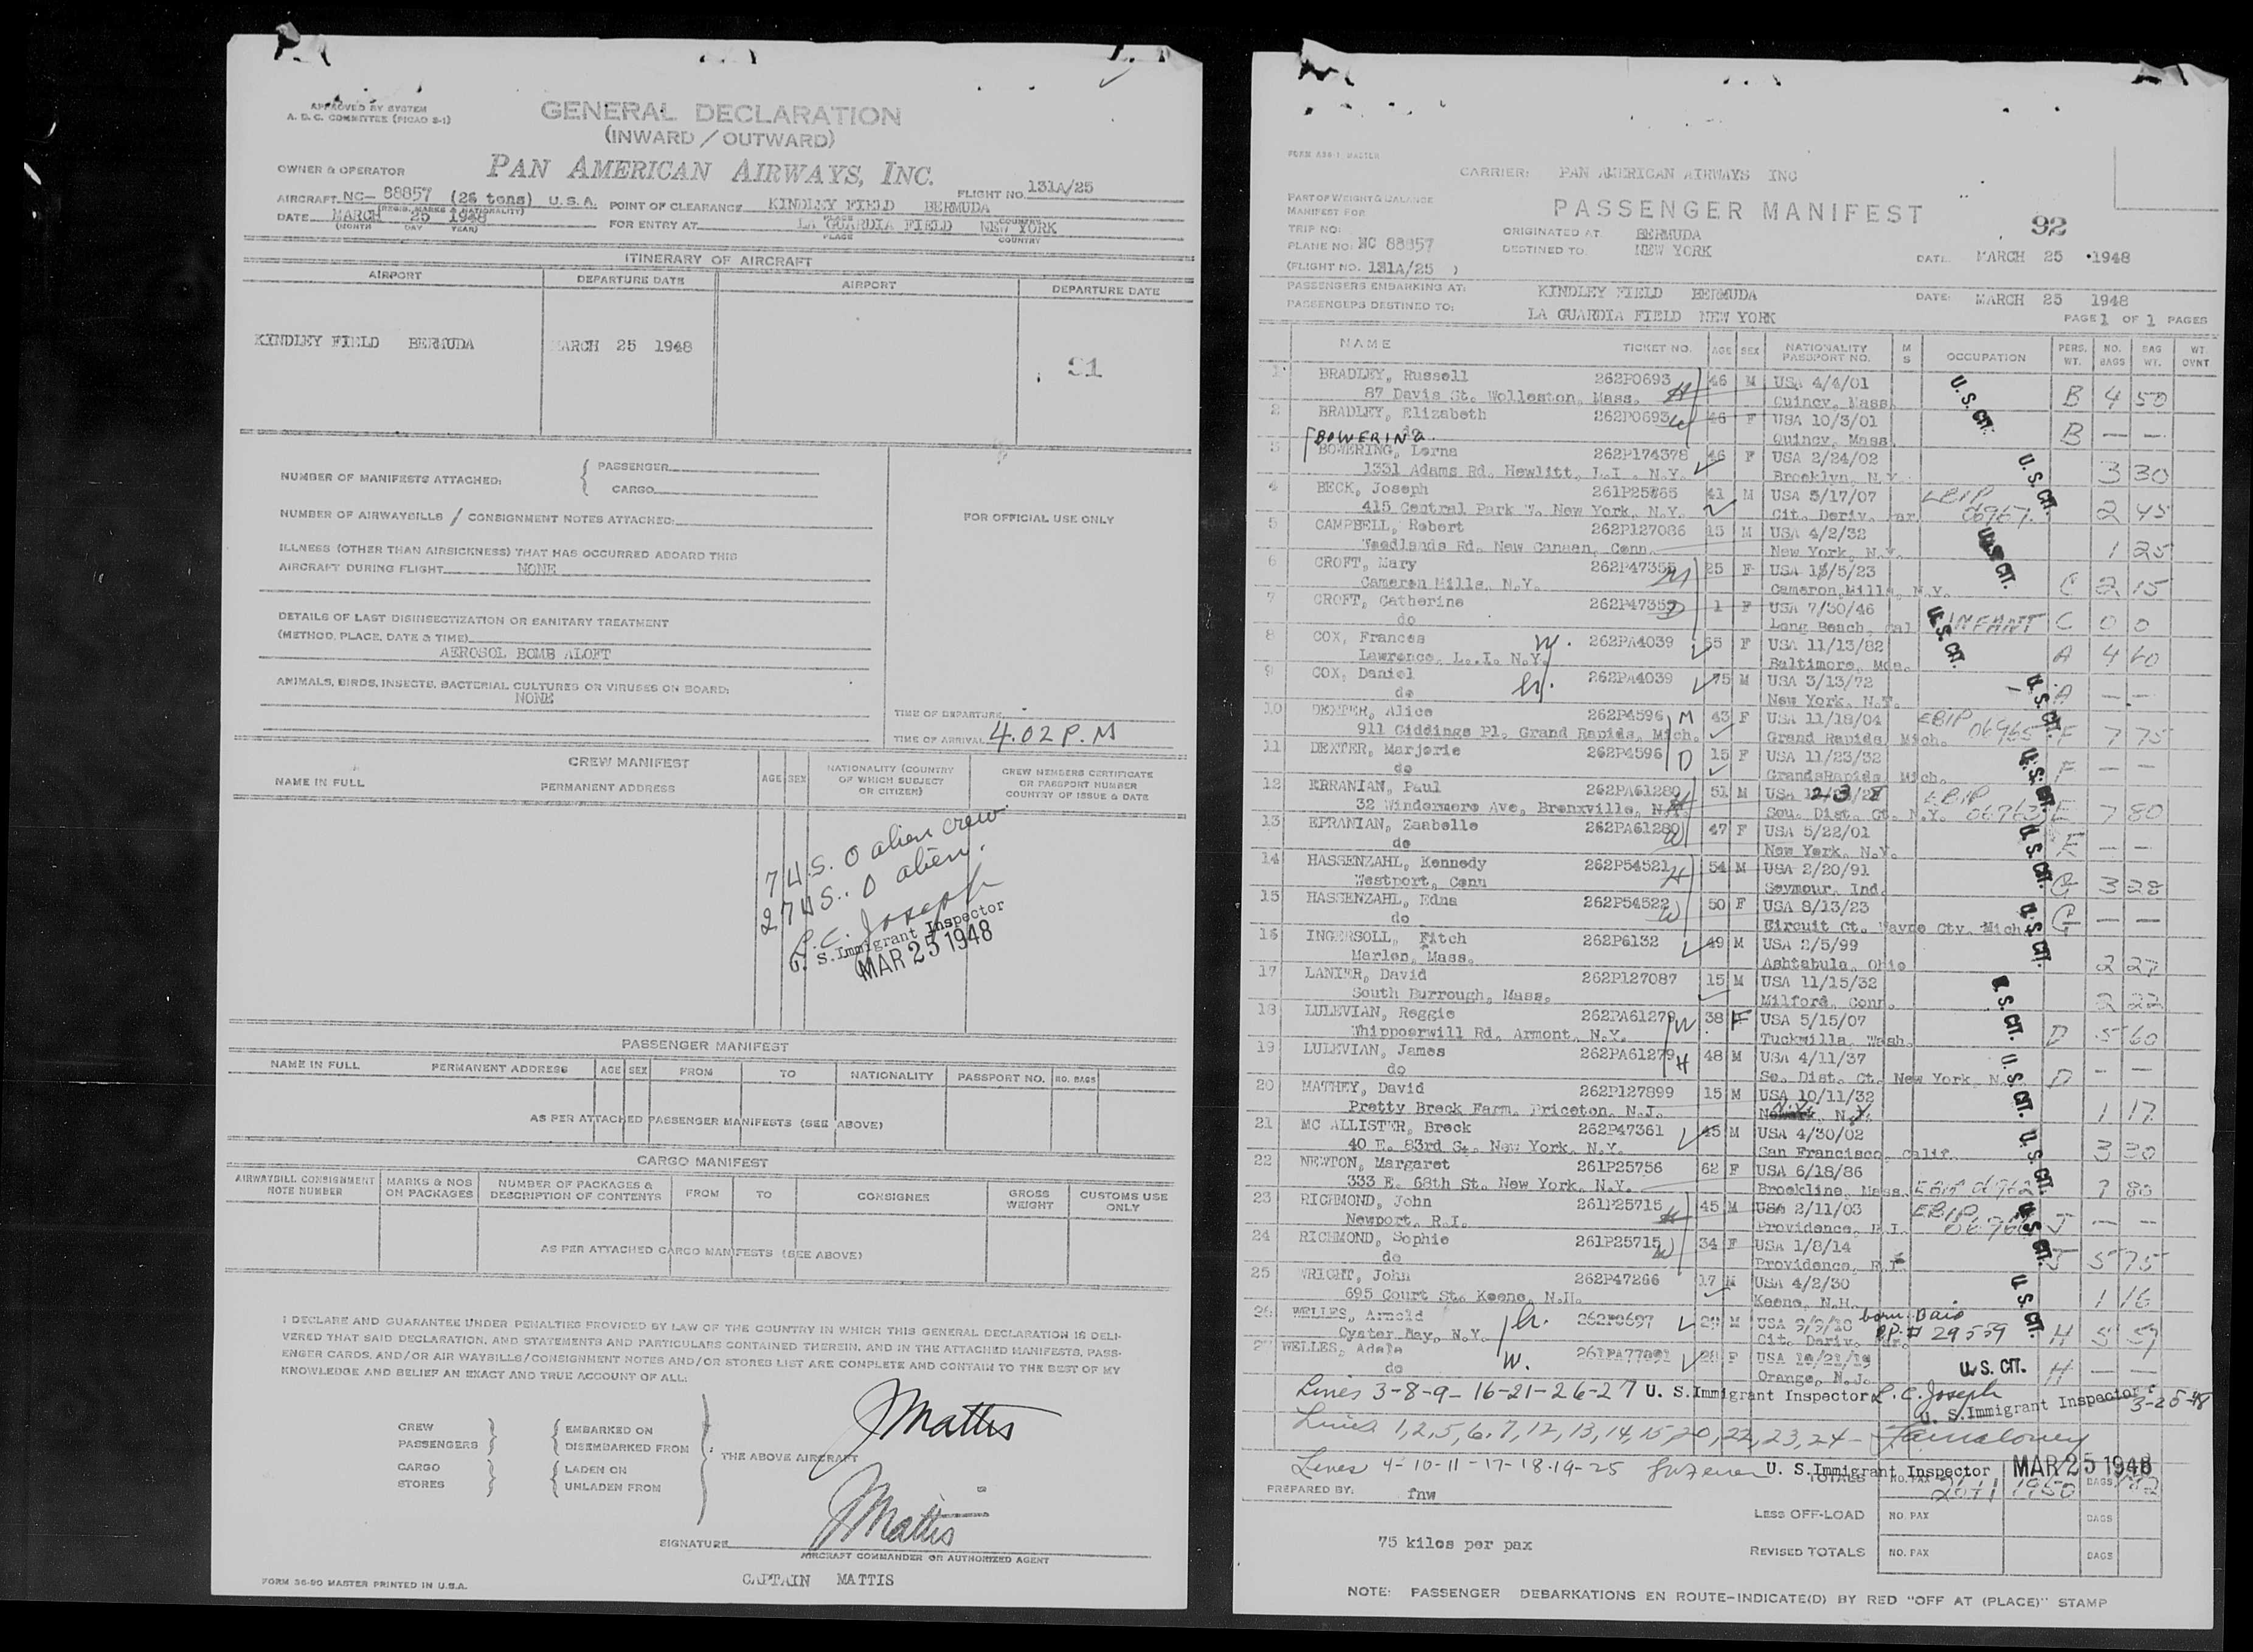 APPROVED BY SYSTEM
A. D. C. COMMITTEE (PICAO S-1)
GENERAL DECLARATION
(INWARD / OUTWARD)
OWNER & OPERATOR PAN AMERICAN AIRWAYS, INC. FLIGHT NO. 131A/25
AIRCRAFT NC- 88857 (26 tons) U.S.A. POINT OF CLEARANCE KINDLEY FIELD BERMUDA
(REGIS. MARKS & NATIONALITY) PLACE COUNTRY
DATE MARCH 25 1948 FOR ENTRY AT LA GUARDIA FIELD NEW YORK
(MONTH DAY YEAR) PLACE COUNTRY
ITINERARY OF AIRCRAFT
AIRPORT DEPARTURE DATE AIRPORT DEPARTURE DATE
KINDLEY FIELD BERMUDA MARCH 25 1948
91
NUMBER OF MANIFESTS ATTACHED: { PASSENGER
CARGO
NUMBER OF AIRWAYBILLS / CONSIGNMENT NOTES ATTACHED: FOR OFFICIAL USE ONLY
ILLNESS (OTHER THAN AIRSICKNESS) THAT HAS OCCURRED ABOARD THIS
AIRCRAFT DURING FLIGHT NONE
DETAILS OF LAST DISINSECTIZATION OR SANITARY TREATMENT
(METHOD, PLACE, DATE & TIME)
AEROSOL BOMB ALOFT
ANIMALS, BIRDS, INSECTS, BACTERIAL CULTURES OR VIRUSES ON BOARD:
NONE
TIME OF DEPARTURE
TIME OF ARRIVAL 4.02 P.M
CREW MANIFEST
NAME IN FULL PERMANENT ADDRESS AGE SEX NATIONALITY (COUNTRY OF WHICH SUBJECT OR CITIZEN) CREW MEMBERS CERTIFICATE OR PASSPORT NUMBER COUNTRY OF ISSUE & DATE
7 U.S. 0 alien crew
27 U.S. 0 alien.
L.C. Joseph
U. S. Immigrant Inspector
MAR 25 1948
PASSENGER MANIFEST
NAME IN FULL PERMANENT ADDRESS AGE SEX FROM TO NATIONALITY PASSPORT NO. NO. BAGS
AS PER ATTACHED PASSENGER MANIFESTS (SEE ABOVE)
CARGO MANIFEST
AIRWAYBILL CONSIGNMENT NOTE NUMBER MARKS & NOS ON PACKAGES NUMBER OF PACKAGES & DESCRIPTION OF CONTENTS FROM TO CONSIGNEE GROSS WEIGHT CUSTOMS USE ONLY
AS PER ATTACHED CARGO MANIFESTS (SEE ABOVE)
I DECLARE AND GUARANTEE UNDER PENALTIES PROVIDED BY LAW OF THE COUNTRY IN WHICH THIS GENERAL DECLARATION IS DELI-
VERED THAT SAID DECLARATION, AND STATEMENTS AND PARTICULARS CONTAINED THEREIN, AND IN THE ATTACHED MANIFESTS, PASS-
ENGER CARDS, AND/OR AIR WAYBILLS/CONSIGNMENT NOTES AND/OR STORES LIST ARE COMPLETE AND CONTAIN TO THE BEST OF MY
KNOWLEDGE AND BELIEF AN EXACT AND TRUE ACCOUNT OF ALL:
CREW EMBARKED ON
PASSENGERS DISEMBARKED FROM
THE ABOVE AIRCRAFT
CARGO LADEN ON
STORES UNLADEN FROM
JMattis
JMattis
SIGNATURE
AIRCRAFT COMMANDER OR AUTHORIZED AGENT
CAPTAIN MATTIS
FORM 36-90 MASTER PRINTED IN U.S.A.
CARRIER: PAN AMERICAN AIRWAYS INC
PART OF WEIGHT & BALANCE
MANIFEST FOR PASSENGER MANIFEST 92
TRIP NO: ORIGINATED AT BERMUDA
PLANE NO: NC 88857 DESTINED TO NEW YORK DATE MARCH 25 1948
(FLIGHT NO. 131A/25 )
PASSENGERS EMBARKING AT: KINDLEY FIELD BERMUDA DATE: MARCH 25 1948
PASSENGERS DESTINED TO: LA GUARDIA FIELD NEW YORK PAGE 1 OF 1 PAGES
NAME TICKET NO. AGE SEX NATIONALITY PASSPORT NO. M S OCCUPATION PERS. WT. NO. BAGS BAG WT. WT. OVNT
1 BRADLEY, Russell 262P0693 46 M USA 4/4/01 U. S. CIT. B 4 50
87 Davis St. Wolleston, Mass. H Quincy, Mass
2 BRADLEY, Elizabeth 262P0693 W 46 F USA 10/3/01 B — —
do Quincy, Mass
BOWERING
3 BOWERING, Lorna 262P174378 46 F USA 2/24/02 U. S. CIT. 3 30
1331 Adams Rd. Hewlitt, L.I. N.Y. Brooklyn, N.Y.
4 BECK, Joseph 261P25865 41 M USA 5/17/07 2 45
415 Central Park W. New York, N.Y. Cit. Deriv. Par. 06967
5 CAMPBELL, Robert 262P127086 15 M USA 4/2/32 U. S. CIT. 1 25
Woodlands Rd. New Canaan, Conn. New York, N.Y.
6 CROFT, Mary 262P47355 M 25 F C 2 15
Cameron Mills, N.Y. Cameron Mills, N.Y.
7 CROFT, Catherine D 1 F USA 7/30/46 INFANT C 0 0
do Long Beach, Cal U. S. CIT.
8 COX, Frances W. 262PA4039 65 F USA 11/13/82 A 4 60
Lawrence, L.I. N.Y. Baltimore,
9 COX, Daniel 262PA4039 75 M USA 3/13/72 A — —
do New York, N.Y. U. S. CIT.
10 DEXTER, Alice 262P4596 M 43 F USA 11/18/04 EBIP 06965 F 7 75
911 Giddings Pl. Grand Rapids, Mich. Grand Rapids, Mich.
11 DEXTER, Marjorie 262P4596 D 15 F USA 11/23/32 F — —
do GrandsRapids, Mich. U. S. CIT.
12 ERRANIAN, Paul 262PA61280 H 51 M USA EBIP 06963 E 7 80
32 Windermere Ave, Bronxville, N.Y. Sou. Dist. Ct. N.Y.
13 EPRANIAN, Zaabelle 262PA61280 W 47 F USA 5/22/01 U. S. CIT. E — —
do New York, N.Y.
14 HASSENZAHL, Kennedy 262P54521 H 54 M USA 2/20/91 G 3 28
Westport, Conn Seymour, Ind.
15 HASSENZAHL, Edna 262P54522 W 50 F USA 8/13/23 U. S. CIT. G — —
do Circuit Ct. Wayne Cty. Mich.
16 INGERSOLL, Fitch 262P6132 49 M USA 2/5/99 2 27
Marlon, Mass. Ashtabula, Ohio
17 LANIER, David 262P127087 15 M USA 11/15/32 U. S. CIT. 2 22
South Burrough, Mass. Milford, Conn.
18 LULEVIAN, Reggie 262PA61279 W 38 F USA 5/15/07 D 5 60
Whippoerwill Rd, Armont, N.Y. Tuckwilla, Wash.
19 LULEVIAN, James 262PA61279 H 48 M USA 4/11/37 U. S. CIT. D — —
do So. Dist. Ct. New York, N.Y.
20 MATHEY, David 262P127899 15 M USA 10/11/32 1 17
Pretty Breck Farm, Priceton, N.J.
21 MC ALLISTER, Breck 262P47361 45 M USA 4/30/02 U. S. CIT. 3 30
40 E. 83rd St. New York, N.Y. San Francisco, Calif.
22 NEWTON, Margaret 261P25756 62 F USA 6/18/86 80
333 E. 68th St. New York, N.Y. Brookline, Mass.
23 RICHMOND, John 261P25715 H 45 M USA 2/11/03 EBIP J — —
Newport, R.I. Providence, R.I. U. S. CIT.
24 RICHMOND, Sophie 261P25715 W 34 F USA 1/8/14 J 5 75
do Providence, R.I.
25 WRIGHT, John 262P47266 17 M USA 4/2/30 1 16
695 Court St. Keene, N.H. Keene, N.H. U. S. CIT.
26 WELLES, Arnold 262P0697 29 M USA born H 5 57
Oyster Bay, N.Y. Cit. Deriv. Par. P.P.# 29559
27 WELLES, Adele W. 28 F USA H — —
do Orange, N.J. U. S. CIT.
Lines 3-8-9-16-21-26-27 U. S. Immigrant Inspector L. C. Joseph
U. S. Immigrant Inspector 3-25-48
Lines 1,2,5,6,7,12,13,14,15,20,22,23,24 -
Lines 4-10-11-17-18-19-25 U. S. Immigrant Inspector MAR 25 1948
TOTALS NO. PAX 26+1 1950 BAGS
PREPARED BY: fnw
LESS OFF-LOAD NO. PAX BAGS
75 kilos per pax
REVISED TOTALS NO. PAX BAGS
NOTE: PASSENGER DEBARKATIONS EN ROUTE-INDICATE(D) BY RED "OFF AT (PLACE)" STAMP